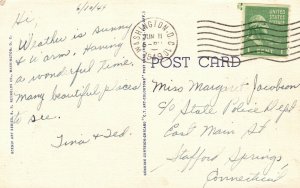 6/10/41
Hi,
Weather is sunny
& warm. Having
a wonderful time.
Many beautiful places
to see.
Tina & Ted.
WASHINGTON, D.C.
JUN 11
POST CARD
Miss Margaret Jacobson
c/o State Police Dept
East Main St
Stafford Springs,
Connecticut